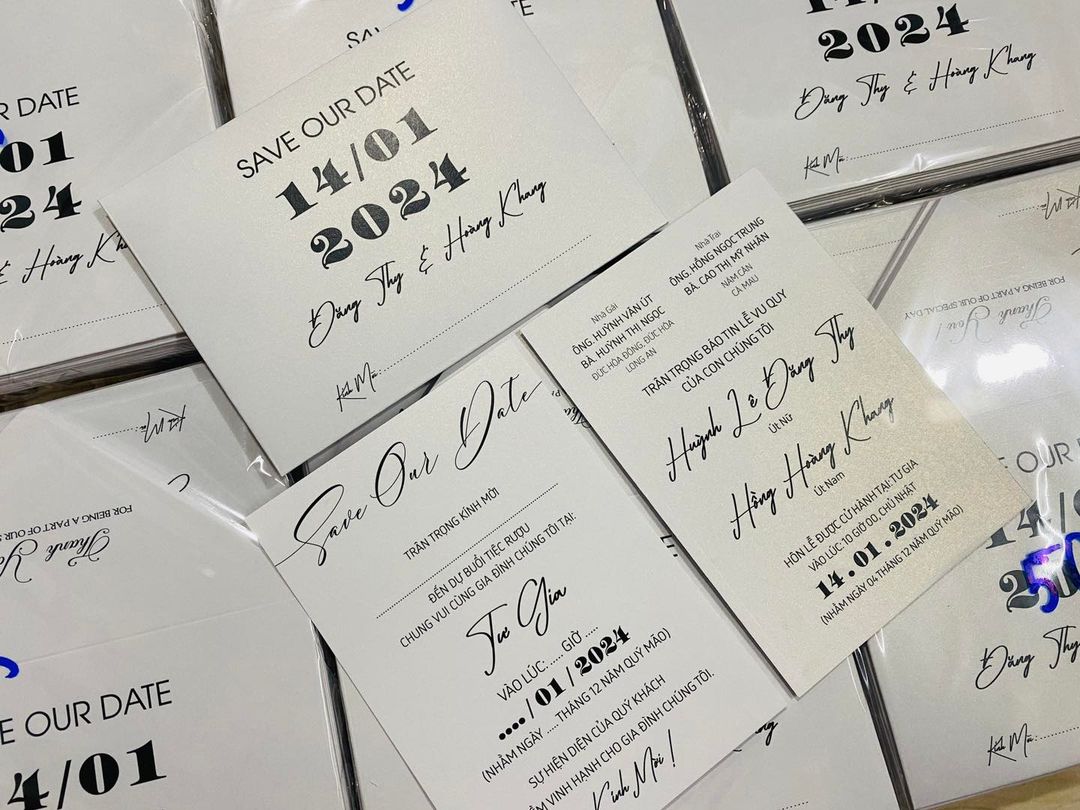 SAVE OUR DATE
14/01
2024
Đăng Thy & Hoàng Khang
Kính Mời:
Save Our Date
TRÂN TRỌNG KÍNH MỜI
ĐẾN DỰ BUỔI TIỆC RƯỢU
CHUNG VUI CÙNG GIA ĐÌNH CHÚNG TÔI TẠI:
Tư Gia
VÀO LÚC: ..... GIỜ .....
.... / 01 / 2024
(NHẰM NGÀY .... THÁNG 12 NĂM QUÝ MÃO)
SỰ HIỆN DIỆN CỦA QUÝ KHÁCH
VINH HẠNH CHO GIA ĐÌNH CHÚNG TÔI.
Kính Mời !
Nhà Gái
ÔNG. HUỲNH VĂN ÚT
BÀ. HUỲNH THỊ NGỌC
ĐỨC HÒA ĐÔNG, ĐỨC HÒA
LONG AN
Nhà Trai
ÔNG. HỒNG NGỌC TRUNG
BÀ. CAO THỊ MỸ NHÂN
NĂM CĂN
CÀ MAU
TRÂN TRỌNG BÁO TIN LỄ VU QUY
CỦA CON CHÚNG TÔI
Huỳnh Lê Đăng Thy
Út Nữ
Hồng Hoàng Khang
Út Nam
HÔN LỄ ĐƯỢC CỬ HÀNH TẠI: TƯ GIA
VÀO LÚC 10 GIỜ 00, CHỦ NHẬT
14.01.2024
(NHẰM NGÀY 04 THÁNG 12 NĂM QUÝ MÃO)
DATE
01
24
& Hoàng
2024
Đăng Thy & Hoàng Khang
Kính Mời:
Thank You !
FOR BEING A PART OF OUR SPECIAL DAY
OUR
14/0
50
Đăng Thy
Kính Mời:
Kính Mời
FOR BEING A PART OF OUR
Thank You
OUR DATE
4/01